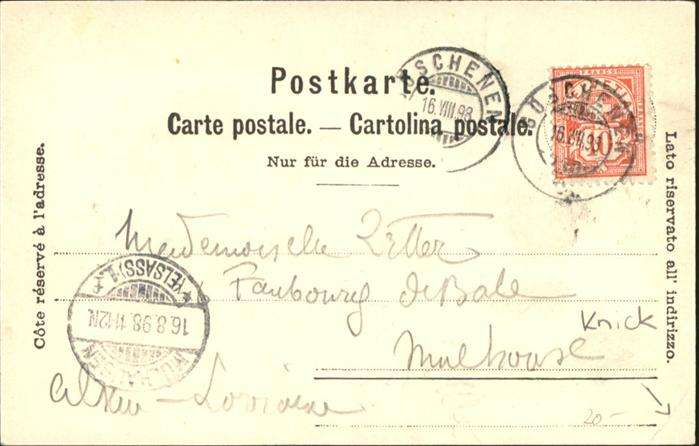 Postkarte.
Carte postale. — Cartolina postale.
Nur für die Adresse.
Côte réservé à l'adresse.
Lato riservato all' indirizzo.
GÖSCHENEN
16.VIII.98
GÖSCHENEN
16.VIII.98
FRANCO
10
Mademoiselle Zetter
Faubourg de Bale
Mulhouse
Alsace - Lorraine
MÜLHAUSEN
16.8.98.11-12N
(ELSASS) 1.
Knick
20-